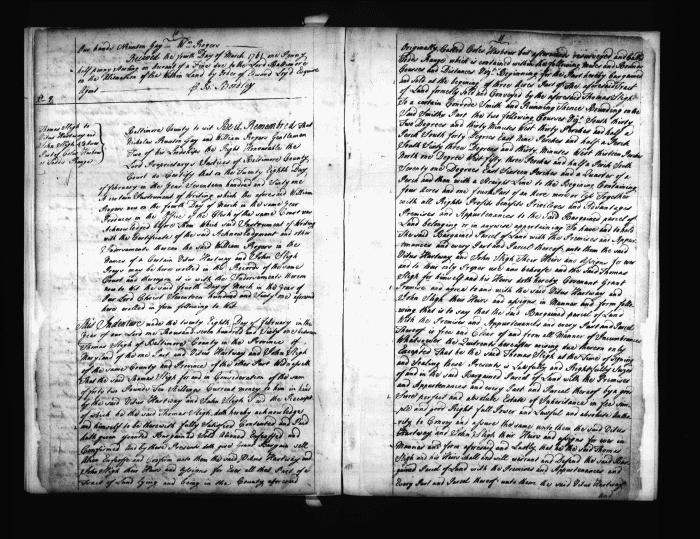 Our hands Nicholas Gay Wm Rogers
Received the fourth Day of March 1761 one Penny
half penny Sterling on Account of a Fine due to the Lord Baltimore
on the Alienation of the Within Land by Order of Edward Lloyd Esquire
Agent
Thomas Sligh to
Vitus Hartway and
John Sligh
Part of Coles Harbour
or Todds Range
Baltimore County to wit Be it Remembred That
Nicholas Gay and William Rogers Gentlemen
Two of the Right Honourable the
Lord Proprietarys Justices of Baltimore County
Court do Certify that on the Twenty Eighth Day
of February in the Year Seventeen hundred and Sixty one
a certain Instrument of Writing which the aforesaid William
Rogers now on the fourth Day of March in the same Year
Produces in the Office of the Clerk of this same Court was
Acknowledged before them Which said Instrument of Writing
with the Certificate of the said Acknowledgment and other
Indorsments thereon the said William Rogers in the
Names of a Certain Vitus Hartway and John Sligh
Prays may be here enrolled in the Records of the same
Court and thereupon it is with the Indorsments thereon
now to wit the said fourth Day of March in the Year of
Our Lord Christ Seventeen Hundred and Sixty one aforesaid
here enrolled in form following to wit
This Indenture made this twenty Eighth Day of February in the
Year of our Lord one Thousand Seven hundred and Sixty one Between
Thomas Sligh of Baltimore County in the Province of
Maryland of the one Part and Vitus Hartway and John Sligh
of the same County and Province of the other Part Witnesseth
That the said Thomas Sligh for and in Consideration of the sum
of forty six Pounds Ten Shillings Current money to him in hand
by the said Vitus Hartway and John Sligh Paid the Receipt
of which he the said Thomas Sligh doth hereby acknowledge
and himself to be therewith fully Satisfied Contented and Paid
hath given granted Bargained Sold Aliened Enfeoffed and
Confirmed and by these Presents doth give grant Bargain sell
Alien Enfeoff and Confirm unto them the said Vitus Hartway and
John Sligh their Heirs and Assigns for Ever all that Part of a
Tract of Land lying and being in the County aforesaid
Originally Called Coles Harbour but afterwards resurveyed and called
Todds Range which is contained within the following Metes and Bounds
Courses and Distances Vizt Beginning for the Part hereby bargained
and Sold at the beginning of three Acres Part of the aforesaid Tract
of Land formerly Sold and Conveyed by the aforesaid Thomas Sligh
To a certain Conrode Smith and Running Thence Bounding on the
said Smiths Part the two following Courses Vizt South Thirty
Two Degrees and Thirty Minutes West thirty Perches and half a
Perch South forty Degrees East Nine Perches and half a Perch
South Sixty three Degrees and Thirty Minutes West thirteen Perches
North one Degree West fifty three Perches and half a Perch South
Seventy one Degrees East Sixteen Perches and a Quarter of a
Perch and then with a Straight Line to the Beginning Containing
four Acres and one fourth Part of an Acre more or less Together
with all Rights Profits benefits Priviledges and Advantages
Premises and Appurtenances to the said Bargained parcel of
Land belonging or in anywise appertaining To have and to hold
the said Bargained Parcel of Land with the Premises and Appur
tenances and every Part and Parcel thereof unto them the said
Vitus Hartway and John Sligh Their Heirs and Assigns for ever
and to their only Proper use and behoofe and the said Thomas
Sligh for himself and his Heirs doth hereby Covenant Grant
Promise and agree to and with the said Vitus Hartway and
John Sligh their Heirs and assigns in Manner and form follo
wing that is to say that the said Bargained parcel of Land
With the Premises and Appurtenances and every Part and Parcel
Thereof is free and Clear of and from all Manner of Incumbrances
Whatsoever the Quitrents hereafter arising due thereon only
Excepted That he the said Thomas Sligh at the Time of Signing
and Sealing these Presents is Lawfully and Rightfully Seized
of and in the said Bargained Parcel of Land with the Premises
and Appurtenances and every Part and Parcel thereof by a good
Sure perfect and absolute Estate of Inheritance in Fee Sim
ple and good Right full Power and Lawful and absolute Autho
rity to Convey and assure the same unto them the said Vitus
Hartway and John Sligh their Heirs and assigns for ever in
Manner and form aforesaid and Lastly that he the said Thomas
Sligh and his Heirs shall and will warrant and Defend the said Bar
gained Parcel of Land with the Premises and Appurtenances and
Every Part and Parcel thereof unto them the said Vitus Hartway
and